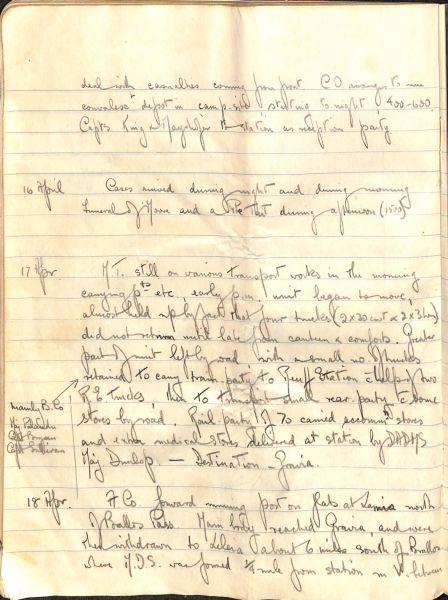 deal with casualties coming from front CO arranges to run
convalesct depot in camp-site starting to-night 400-600.
Capts King & to station as reception party
16 April Cases arrived during night and during morning
Funeral of Moore and a Pte that during afternoon (1500)
17 Apr M.T. still on various transport works in the morning
carrying pts etc. early p.m. unit began to move,
almost held up by fact that four trucks (2 x 30 cwt & 2 x 3 ton)
did not return until late from canteen & comforts. Greater
part of unit left by road with a small no. of trucks
retained to carry train party to Station & help of two
R.E. trucks, then to transport small rear party & some
stores by road. Rail party of 70 carried essential stores
and extra medical stores delivered at station by DADMS
Maj Dunlop. — Destination — Gravia.
mainly B. Co
Maj.
Capt
Capt Sullivan
18 Apr. A Co forward running post on flats at Lamia north
of Brallos Pass. Main body reached Gravia, and were
then withdrawn to about 6 miles south of Brallos
where M.D.S. was formed ¼ mile from station in V. between